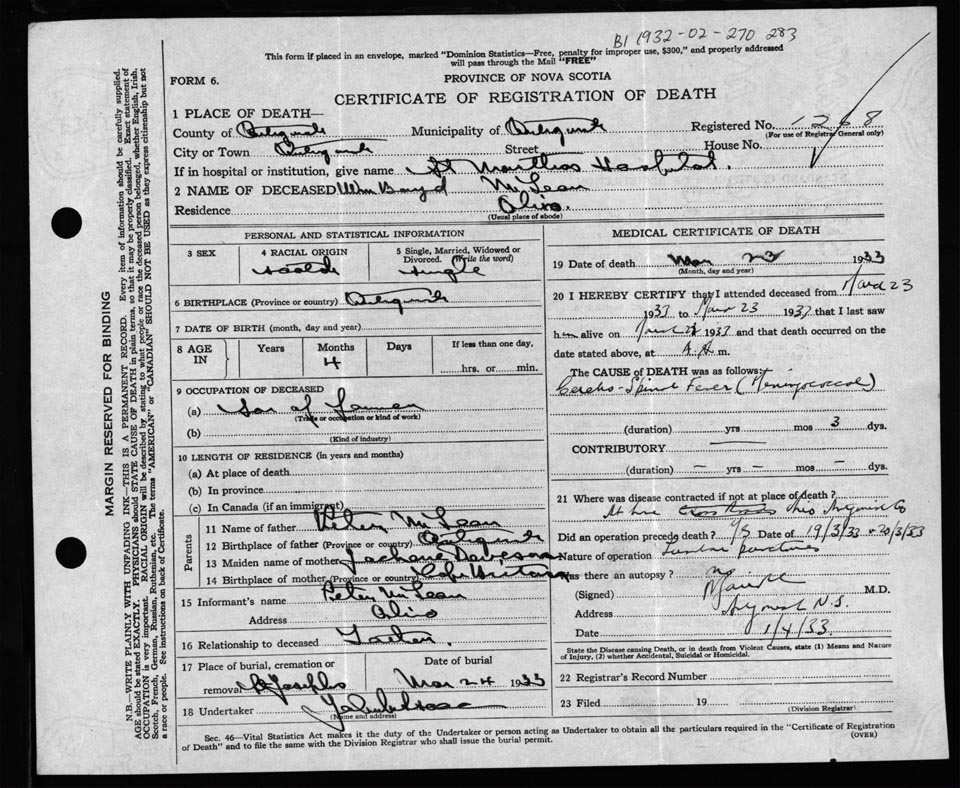 B1 1932-02-270 283
This form if placed in an envelope, marked "Dominion Statistics—Free, penalty for improper use, $300," and properly addressed
will pass through the Mail "FREE"
FORM 6.
PROVINCE OF NOVA SCOTIA
CERTIFICATE OF REGISTRATION OF DEATH
1 PLACE OF DEATH—
County of Municipality of Registered No. 1268
(For use of Registrar General only)
City or Town Street House No.
If in hospital or institution, give name St Marthas Hospital.
2 NAME OF DECEASED Wm Boyd McLean
Residence Ohio.
(Usual place of abode)
PERSONAL AND STATISTICAL INFORMATION
3 SEX 4 RACIAL ORIGIN 5 Single, Married, Widowed or Divorced. (Write the word)
Single
6 BIRTHPLACE (Province or country)
7 DATE OF BIRTH (month, day and year)
8 AGE IN Years Months Days If less than one day,
4 hrs. or min.
9 OCCUPATION OF DECEASED
(a) Son of Farmer
(Trade or occupation or kind of work)
(b)
(Kind of industry)
10 LENGTH OF RESIDENCE (in years and months)
(a) At place of death
(b) In province
(c) In Canada (if an immigrant)
Parents
11 Name of father Peter McLean
12 Birthplace of father (Province or country)
13 Maiden name of mother
14 Birthplace of mother (Province or country)
15 Informant's name Peter McLean
Address Ohio
16 Relationship to deceased Father.
17 Place of burial, cremation or Date of burial
removal St Josephs Mar 24 1933
18 Undertaker
(Name and address)
MEDICAL CERTIFICATE OF DEATH
19 Date of death Mar 23 1933
(Month, day and year)
20 I HEREBY CERTIFY that I attended deceased from March 23
1933 to Mar 23 1933 that I last saw
h alive on 1933 and that death occurred on the
date stated above, at m.
The CAUSE of DEATH was as follows:
Cerebro-Spinal Fever (Meningococcal)
(duration) yrs mos 3 dys.
CONTRIBUTORY —
(duration) — yrs — mos — dys.
21 Where was disease contracted if not at place of death?
At home Ohio Antigonish Co
Did an operation precede death? Yes Date of 19/3/33 & 20/3/33
Nature of operation Lumbar punctures
Was there an autopsy? no
(Signed) M.D.
Address Antigonish N.S.
Date 1/4/33.
State the Disease causing Death, or in death from Violent Causes, state (1) Means and Nature
of Injury, (2) whether Accidental, Suicidal or Homicidal.
22 Registrar's Record Number
23 Filed 19
(Division Registrar)
Sec. 46—Vital Statistics Act makes it the duty of the Undertaker or person acting as Undertaker to obtain all the particulars required in the "Certificate of Registration
of Death" and to file the same with the Division Registrar who shall issue the burial permit. (OVER)
MARGIN RESERVED FOR BINDING
N.B.—WRITE PLAINLY WITH UNFADING INK—THIS IS A PERMANENT RECORD. Every item of information should be carefully supplied.
AGE should be stated EXACTLY. PHYSICIANS should STATE CAUSE OF DEATH in plain terms, so that it may be properly classified. Exact statement of
OCCUPATION is very important. RACIAL ORIGIN will be described by stating to what people or race the deceased person belonged, whether English, Irish,
Scotch, French, German, Russian, Ruthenian, etc. The terms "AMERICAN" or "CANADIAN" SHOULD NOT BE USED as they express citizenship but not
a race or people. See instructions on back of Certificate.